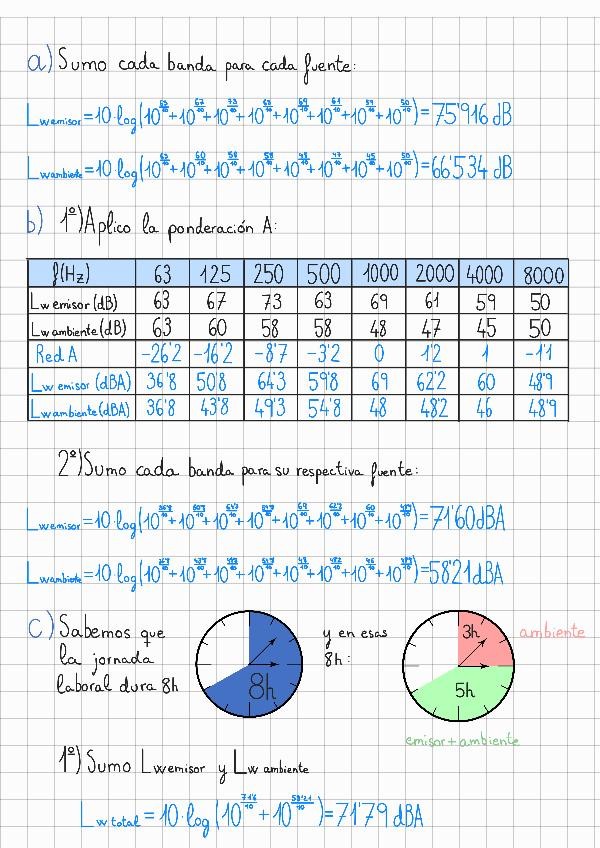 a) Sumo cada banda para cada fuente:
Lw emisor = 10·log(10^(63/10) + 10^(67/10) + 10^(73/10) + 10^(63/10) + 10^(69/10) + 10^(61/10) + 10^(59/10) + 10^(50/10)) = 75'916 dB
Lw ambiente = 10·log(10^(63/10) + 10^(60/10) + 10^(58/10) + 10^(58/10) + 10^(48/10) + 10^(47/10) + 10^(45/10) + 10^(50/10)) = 66'534 dB
b) 1º) Aplico la ponderación A:
f(Hz) 63 125 250 500 1000 2000 4000 8000
Lw emisor (dB) 63 67 73 63 69 61 59 50
Lw ambiente (dB) 63 60 58 58 48 47 45 50
Red A -26'2 -16'2 -8'7 -3'2 0 1'2 1 -1'1
Lw emisor (dBA) 36'8 50'8 64'3 59'8 69 62'2 60 48'9
Lw ambiente (dBA) 36'8 43'8 49'3 54'8 48 48'2 46 48'9
2º) Sumo cada banda para su respectiva fuente:
Lw emisor = 10·log(10^(36'8/10) + 10^(50'8/10) + 10^(64'3/10) + 10^(59'8/10) + 10^(69/10) + 10^(62'2/10) + 10^(60/10) + 10^(48'9/10)) = 71'60 dBA
Lw ambiente = 10·log(10^(36'8/10) + 10^(43'8/10) + 10^(49'3/10) + 10^(54'8/10) + 10^(48/10) + 10^(48'2/10) + 10^(46/10) + 10^(48'9/10)) = 58'21 dBA
c) Sabemos que
la jornada
laboral dura 8h
8h
y en esas
8h:
3h
ambiente
5h
emisor + ambiente
1º) Sumo Lw emisor y Lw ambiente
Lw total = 10·log(10^(71'6/10) + 10^(58'21/10)) = 71'79 dBA